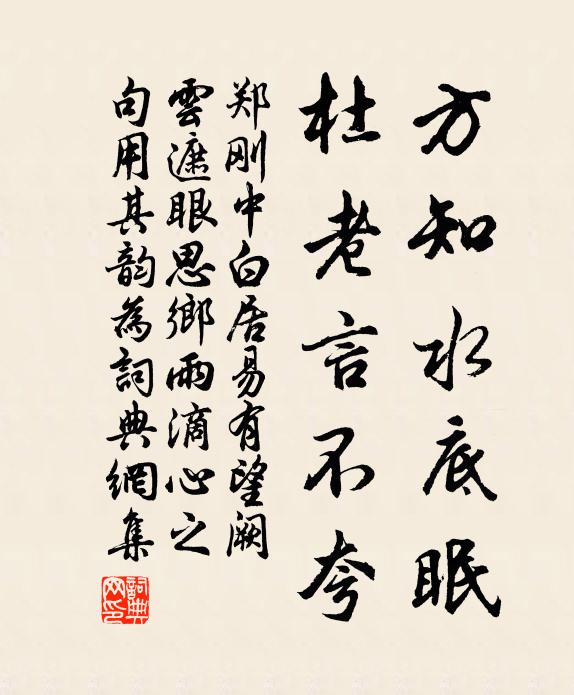 方知水底眠
杜老言不夸
郑刚中白居易有望阙
雲遮眼思鄉雨滴心之
句用其韵為詞典網集
詞典
网印